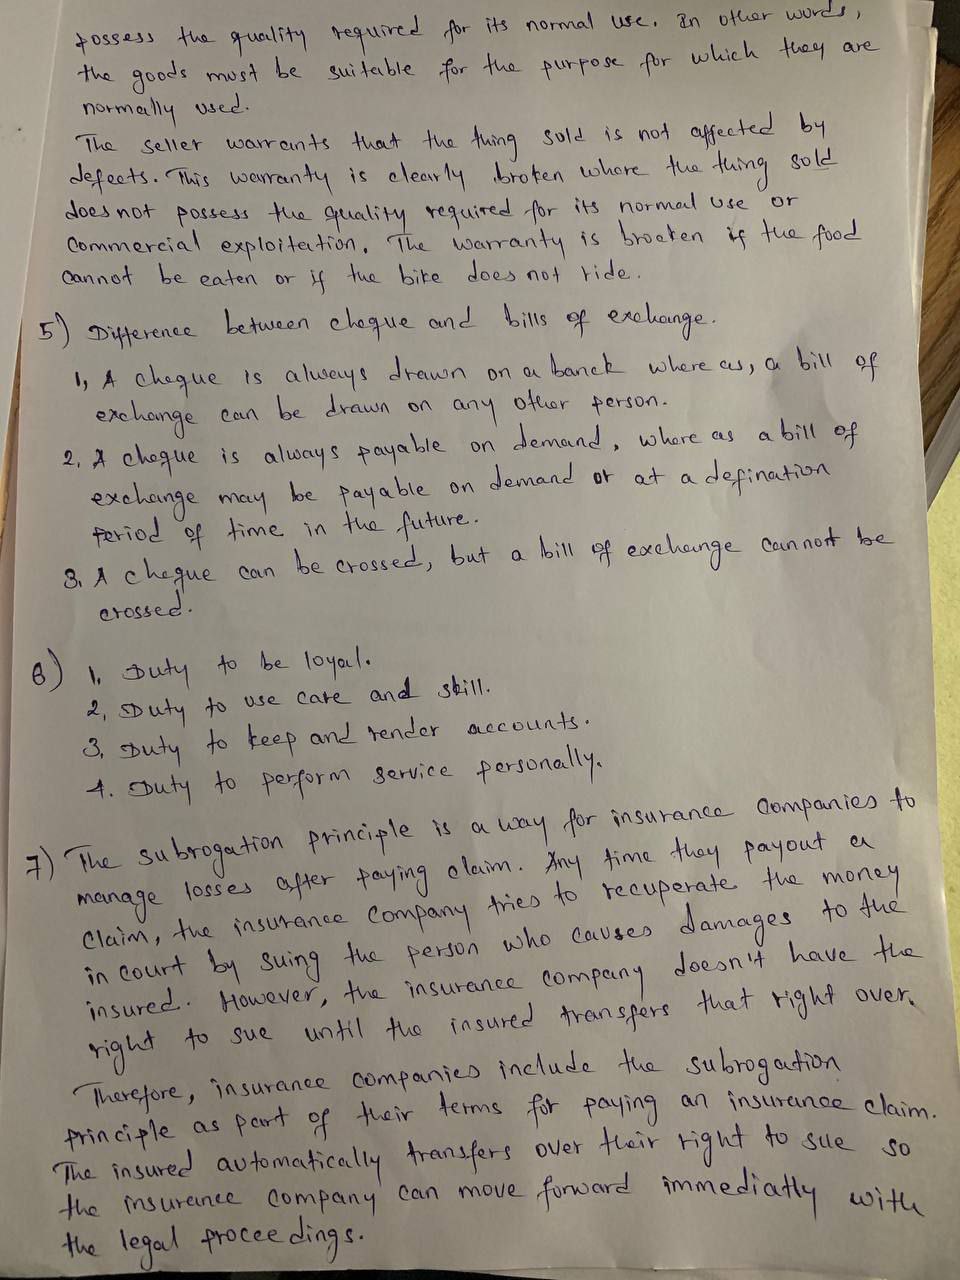 possess the quality required for its normal use. In other words,
the goods must be suitable for the purpose for which they are
normally used.
The seller warrants that the thing sold is not affected by
defects. This warranty is clearly broken where the thing sold
does not possess the quality required for its normal use or
commercial exploitation. The warranty is broken if the food
cannot be eaten or if the bike does not ride.
5) Difference between cheque and bills of exchange.
1, A cheque is always drawn on a banck where as, a bill of
exchange can be drawn on any other person.
2. A cheque is always payable on demand, where as a bill of
exchange may be payable on demand or at a defination
period of time in the future.
3. A cheque can be crossed, but a bill of exchange cannot be
crossed.
6) 1. Duty to be loyal.
2, Duty to use care and skill.
3, Duty to keep and render accounts.
4. Duty to perform service personally.
7) The subrogation principle is a way for insurance companies to
manage losses after paying claim. Any time they payout a
claim, the insurance company tries to recuperate the money
in court by suing the person who causes damages to the
insured. However, the insurance company doesn't have the
right to sue until the insured transfers that right over.
Therefore, insurance companies include the subrogation
principle as part of their terms for paying an insurance claim.
The insured automatically transfers over their right to sue so
the insurance company can move forward immediatly with
the legal proceedings.